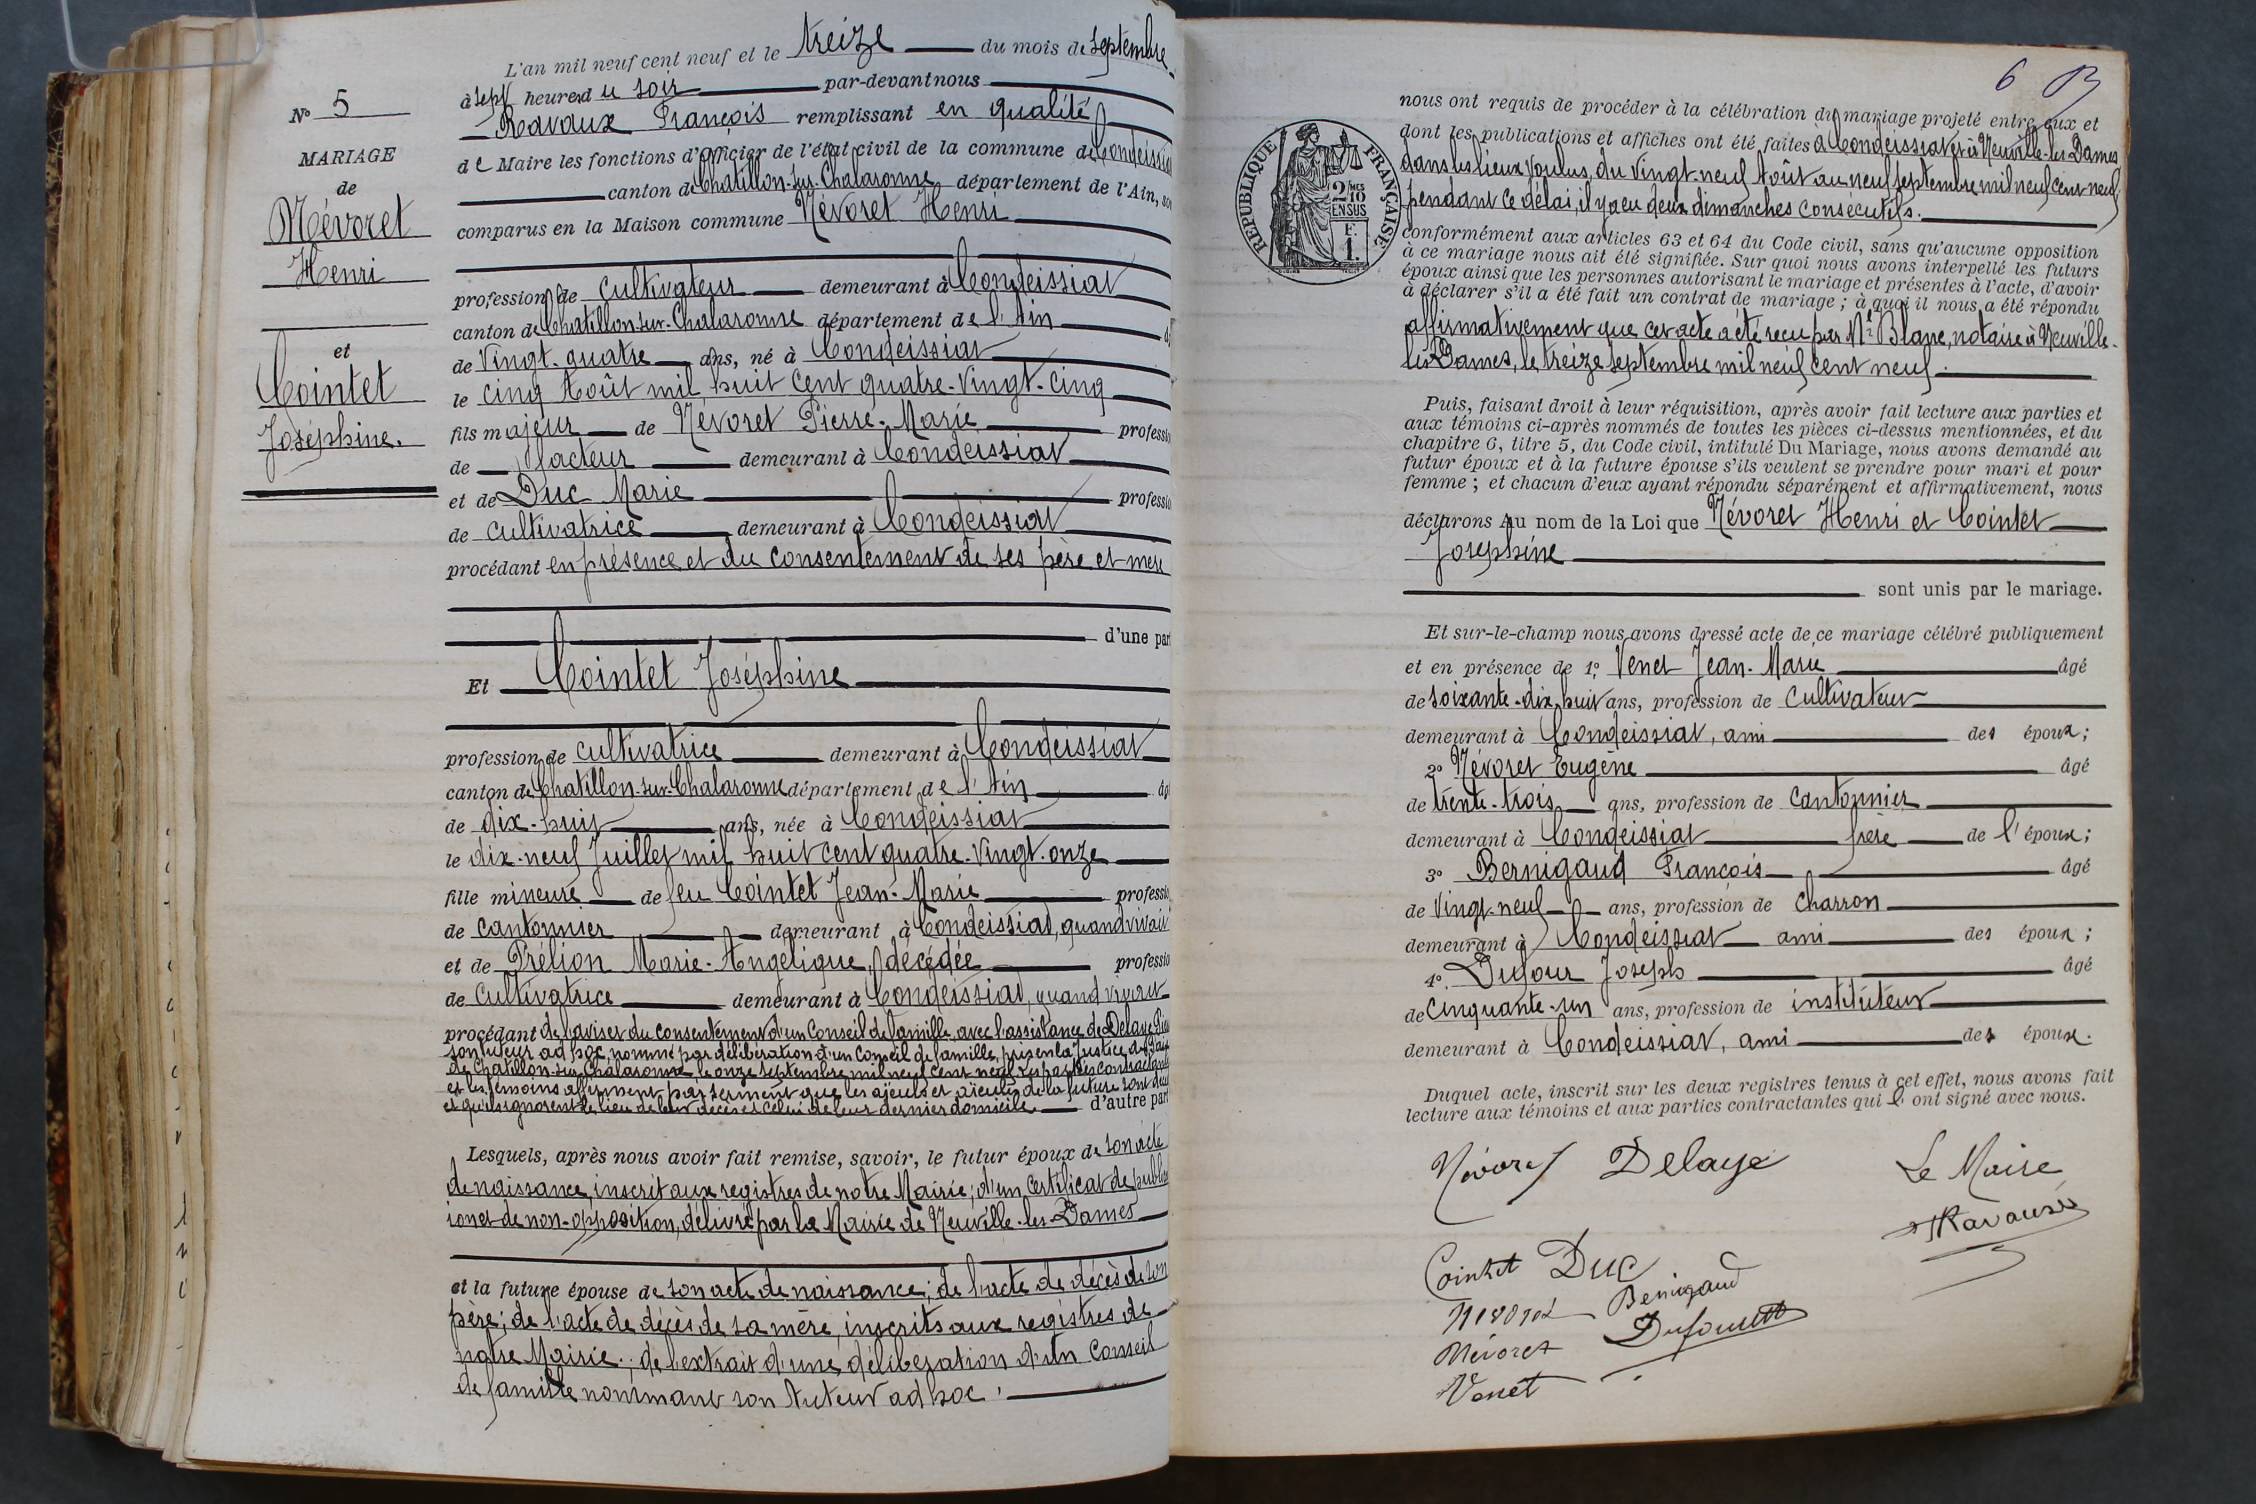 N° 5
MARIAGE
de
Névoret
Henri
et
Cointet
Joséphine.
L'an mil neuf cent neuf et le treize du mois de septembre
à sept heures du soir par-devant nous
Ravaux François remplissant en qualité
de Maire les fonctions d'officier de l'état civil de la commune de Condeissiat
canton de Châtillon-sur-Chalaronne département de l'Ain, so
comparus en la Maison commune Névoret Henri
profession de cultivateur demeurant à Condeissiat
canton de Châtillon-sur-Chalaronne département de l'Ain
de vingt-quatre ans, né à Condeissiat
le cinq Août mil huit cent quatre-vingt-cinq
fils majeur de Névoret Pierre-Marie professio
de facteur demeurant à Condeissiat
et de Duc Marie professio
de cultivatrice demeurant à Condeissiat
procédant en présence et du consentement de ses père et mère
d'une par
Et Cointet Joséphine
profession de cultivatrice demeurant à Condeissiat
canton de Châtillon-sur-Chalaronne département de l'Ain âg
de dix-huit ans, née à Condeissiat
le dix-neuf Juillet mil huit cent quatre-vingt-onze
fille mineure de feu Cointet Jean-Marie professio
de cantonnier demeurant à Condeissiat, quand vivait
et de Prélion Marie-Angélique, décédée professio
de cultivatrice demeurant à Condeissiat, quand vivait
procédant de l'avis et du consentement d'un Conseil de famille avec l'assistance de Delaye
son tuteur ad hoc, nommé par délibération d'un Conseil de famille, pris en la Justice de Paix
de Châtillon-sur-Chalaronne, le onze septembre mil neuf cent neuf. Les parties contractantes
et les témoins affirment par serment que les aïeuls et aïeules de la future sont
et qu'ils ignorent le lieu de leur décès et celui de leur dernier domicile d'autre par
Lesquels, après nous avoir fait remise, savoir, le futur époux de son acte
de naissance, inscrit aux registres de notre Mairie; d'un certificat de publica
ion et de non-opposition, délivré par la Mairie de Neuville-les-Dames
et la future épouse de son acte de naissance; de l'acte de décès de son
père; de l'acte de décès de sa mère, inscrits aux registres de
notre Mairie; de l'extrait d'une délibération d'un Conseil
de famille nommant son tuteur ad hoc.
6
RÉPUBLIQUE FRANÇAISE
2/10 MES
EN SUS
F.
1.
nous ont requis de procéder à la célébration du mariage projeté entre eux et
dont les publications et affiches ont été faites à Condeissiat et à Neuville-les-Dames
dans les lieux voulus, du vingt-neuf Août au neuf septembre mil neuf cent neuf
pendant ce délai, il y a eu deux dimanches consécutifs.
conformément aux articles 63 et 64 du Code civil, sans qu'aucune opposition
à ce mariage nous ait été signifiée. Sur quoi nous avons interpellé les futurs
époux ainsi que les personnes autorisant le mariage et présentes à l'acte, d'avoir
à déclarer s'il a été fait un contrat de mariage ; à quoi il nous a été répondu
affirmativement que cet acte a été reçu par Me Blanc, notaire à Neuville-
les-Dames, le treize septembre mil neuf cent neuf.
Puis, faisant droit à leur réquisition, après avoir fait lecture aux parties et
aux témoins ci-après nommés de toutes les pièces ci-dessus mentionnées, et du
chapitre 6, titre 5, du Code civil, intitulé Du Mariage, nous avons demandé au
futur époux et à la future épouse s'ils veulent se prendre pour mari et pour
femme ; et chacun d'eux ayant répondu séparément et affirmativement, nous
déclarons Au nom de la Loi que Névoret Henri et Cointet
Joséphine
sont unis par le mariage.
Et sur-le-champ nous avons dressé acte de ce mariage célébré publiquement
et en présence de 1° Venet Jean-Marie âgé
de soixante-dix-huit ans, profession de cultivateur
demeurant à Condeissiat, ami des époux;
2° Névoret Eugène âgé
de trente-trois ans, profession de cantonnier
demeurant à Condeissiat frère de l'époux;
3° Bernigaud François âgé
de vingt-neuf ans, profession de charron
demeurant à Condeissiat ami des époux;
4° Dufour Joseph âgé
de cinquante-un ans, profession de instituteur
demeurant à Condeissiat, ami des époux.
Duquel acte, inscrit sur les deux registres tenus à cet effet, nous avons fait
lecture aux témoins et aux parties contractantes qui l' ont signé avec nous.
Névoret Delaye Le Maire
Ravaux
Cointet Duc
Névoret Bernigaud
Névoret Dufour
Venet